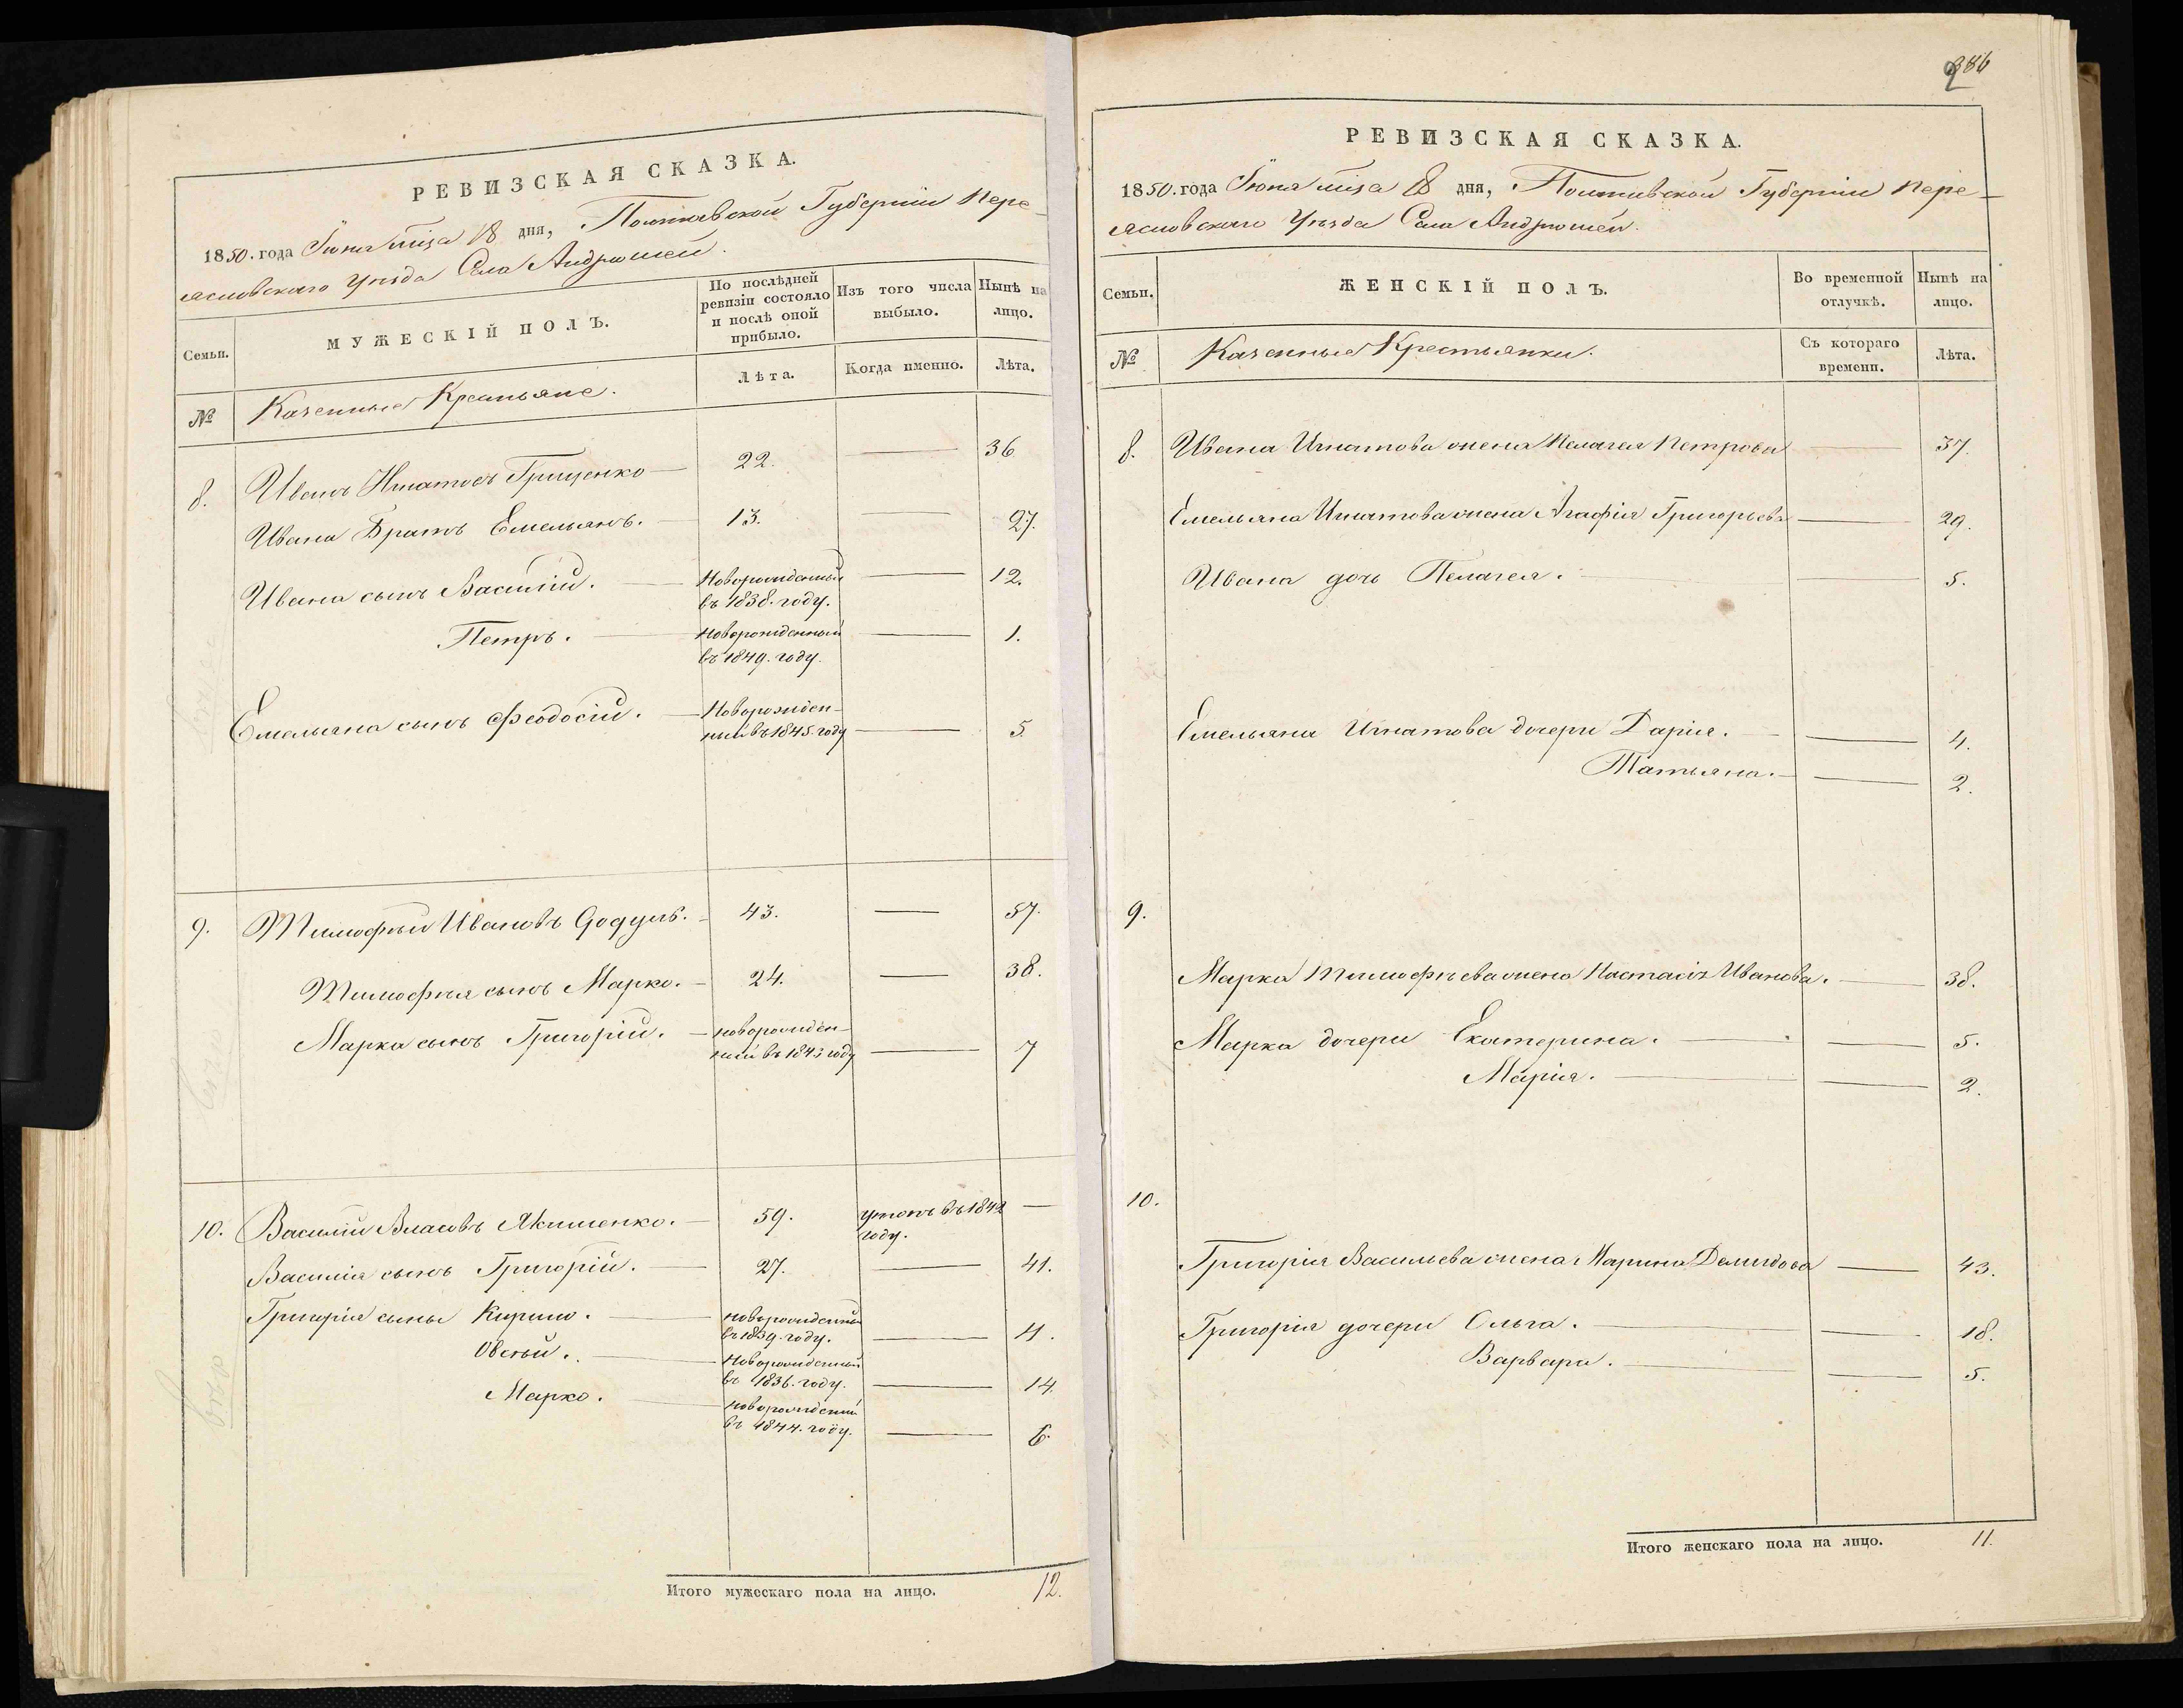 РЕВИЗСКАЯ СКАЗКА.
1850. года Іюня мѣсяца 18 дня, Полтавской Губерніи Пере-
яславскаго Уѣзда Села Андрушей.
Семьи.
МУЖЕСКІЙ ПОЛЪ.
По послѣдней
ревизіи состояло
и послѣ оной
прибыло.
Изъ того числа
выбыло.
Нынѣ на
лицо.
№
Казенные Крестьяне.
Лѣта.
Когда именно.
Лѣта.
8. Иванъ Игнатовъ Грищенко 22. 36
Ивана Братъ Емельянъ. 13. 27.
Ивана сынъ Василій. Новорожденный 12.
въ 1838. году.
Петръ. Новорожденный 1.
въ 1849. году.
Емельяна сынъ Феодосій. Новорожден-
ный въ 1845. году 5.
9. Тимофѣй Ивановъ 43. 57.
Тимофѣя сынъ Марко. 24. 38.
Марка сынъ Григорій. новорожден-
ный въ 1843 году 7
10. Василій Власовъ Якименко. 59. утопъ въ 1842
году.
Василія сынъ Григорій. 27. 41.
Григорія сыны Кирило. новорожденный
въ 1839. году. 11.
Овсѣй. Новорожденный
въ 1836. году. 14.
Марко. новорожденный
въ 1844. году. 6.
Итого мужескаго пола на лицо. 12.
286
РЕВИЗСКАЯ СКАЗКА.
1850. года Іюня мѣсяца 18 дня, Полтавской Губерніи Пере-
яславскаго Уѣзда Села Андрушей.
Семьи.
ЖЕНСКІЙ ПОЛЪ.
Во временной
отлучкѣ.
Нынѣ на
лицо.
№
Казенные Крестьянки.
Съ котораго
времени.
Лѣта.
8. Ивана Игнатова жена Пелагея Петрова 37.
Емельяна Игнатова жена Агафія Григорьева 29.
Ивана дочь Пелагея. 5.
Емельяна Игнатова дочери Дарія. 4.
Татьяна. 2.
9.
Марка Тимофѣева жена Настасія Иванова. 38.
Марка дочери Екатерина. 5.
Марія. 2.
10.
Григорія Васильева жена Марина Демидова 43.
Григорія дочери Ольга. 18.
Варвара. 5.
Итого женскаго пола на лицо. 11.